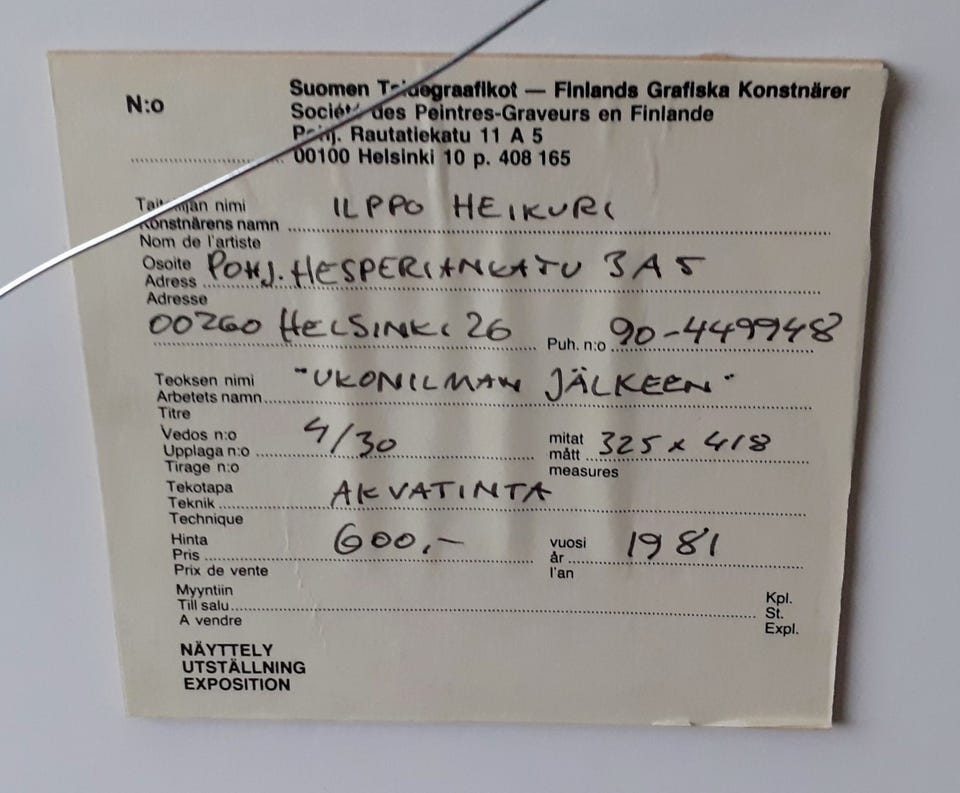 N:o
Suomen Taidegraafikot — Finlands Grafiska Konstnärer
Société des Peintres-Graveurs en Finlande
Pohj. Rautatiekatu 11 A 5
00100 Helsinki 10 p. 408 165
Taiteilijan nimi ILPPO HEIKURI
Konstnärens namn
Nom de l'artiste
Osoite POHJ. HESPERIANKATU 3 A 5
Adress
Adresse
00260 HELSINKI 26 Puh. n:o 90-449948
Teoksen nimi "UKONILMAN JÄLKEEN"
Arbetets namn
Titre
Vedos n:o 4/30 mitat 325 x 418
Upplaga n:o mått
Tirage n:o measures
Tekotapa AKVATINTA
Teknik
Technique
Hinta 600,- vuosi 1981
Pris år
Prix de vente l'an
Myyntiin Kpl.
Till salu St.
A vendre Expl.
NÄYTTELY
UTSTÄLLNING
EXPOSITION